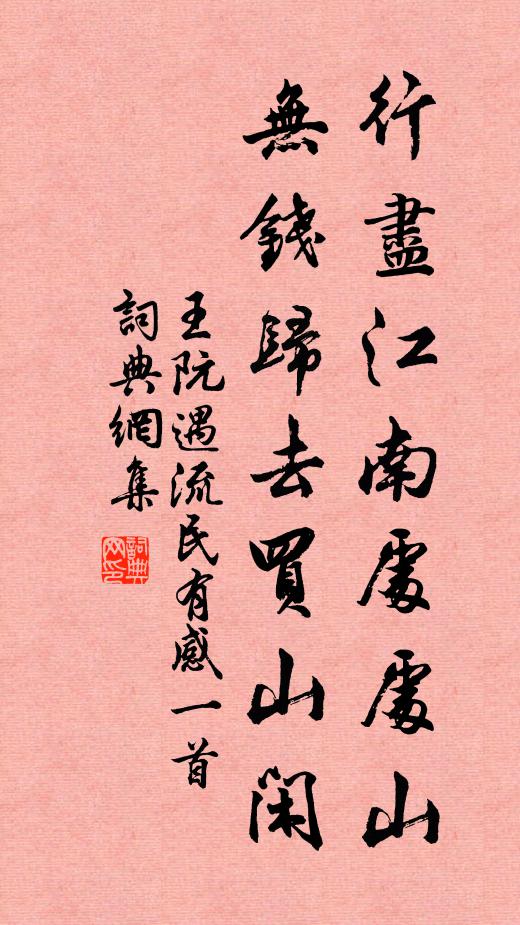 行盡江南處處山
無錢歸去買山閑
王阮遇流民有感一首
詞典網集
詞典网印